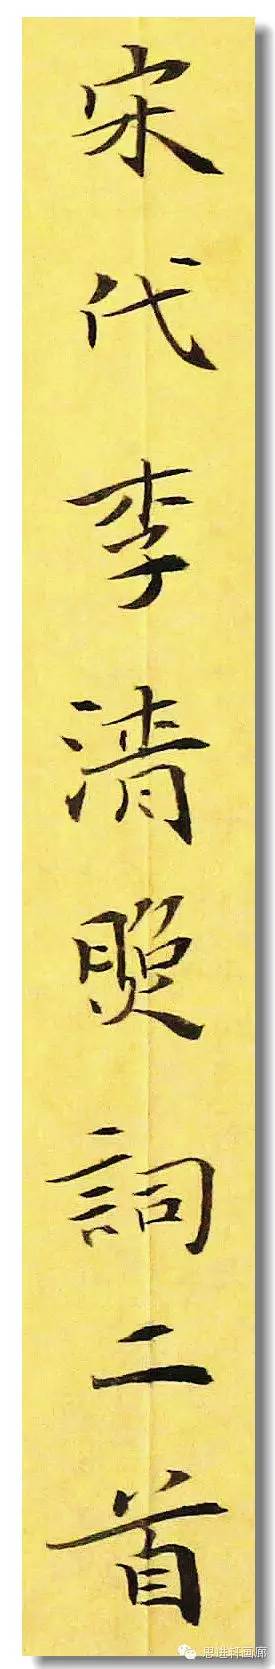 宋代李清照詞二首
思进轩画廊